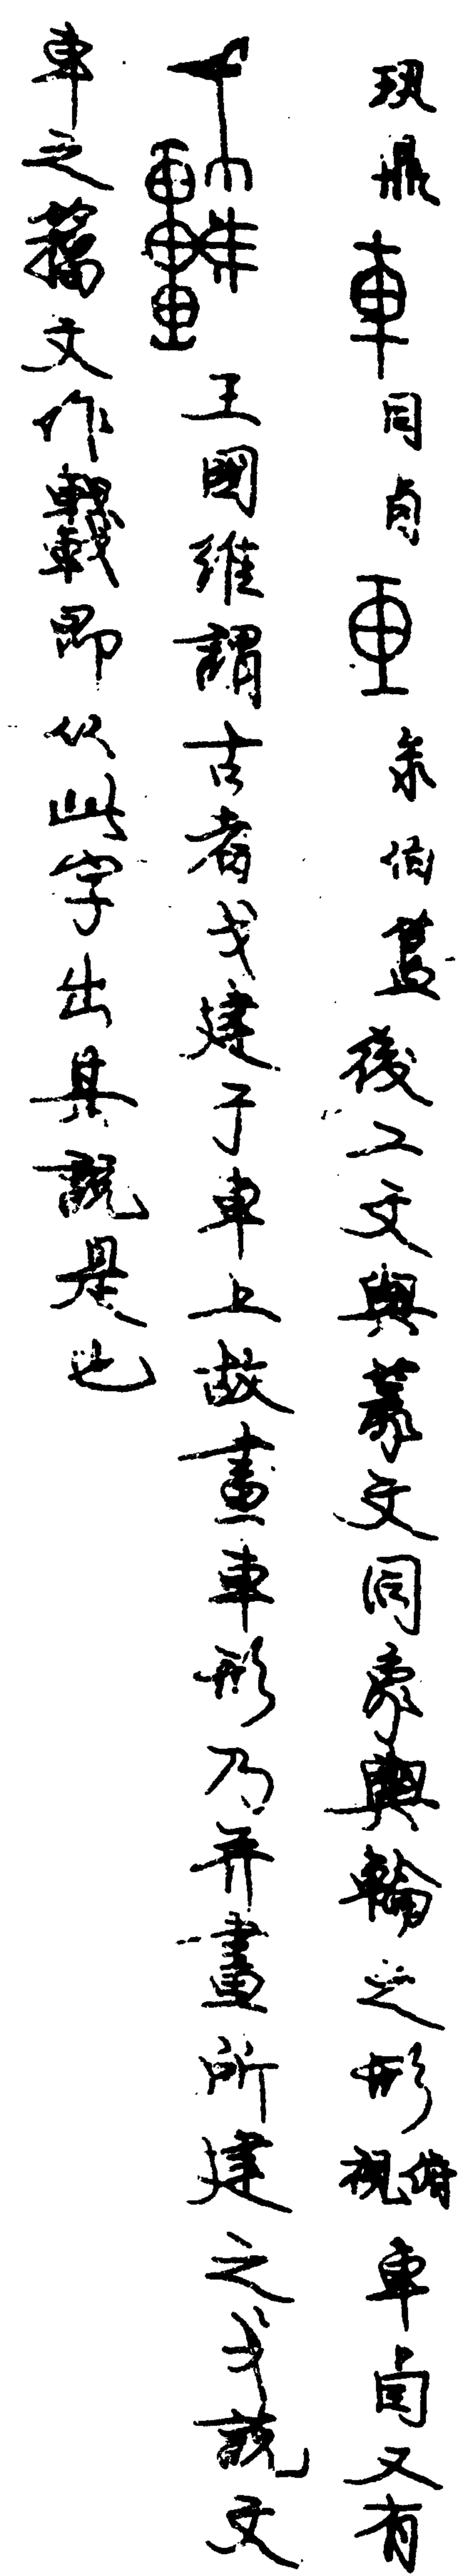 鼎車同卣車彔伯後二文與篆文同象輿輪之形俯視車卣又有
王國維謂古者戈建于車上故畫車形乃并畫所建之戈說文
車之籀文作𨏖即从此字出其說是也